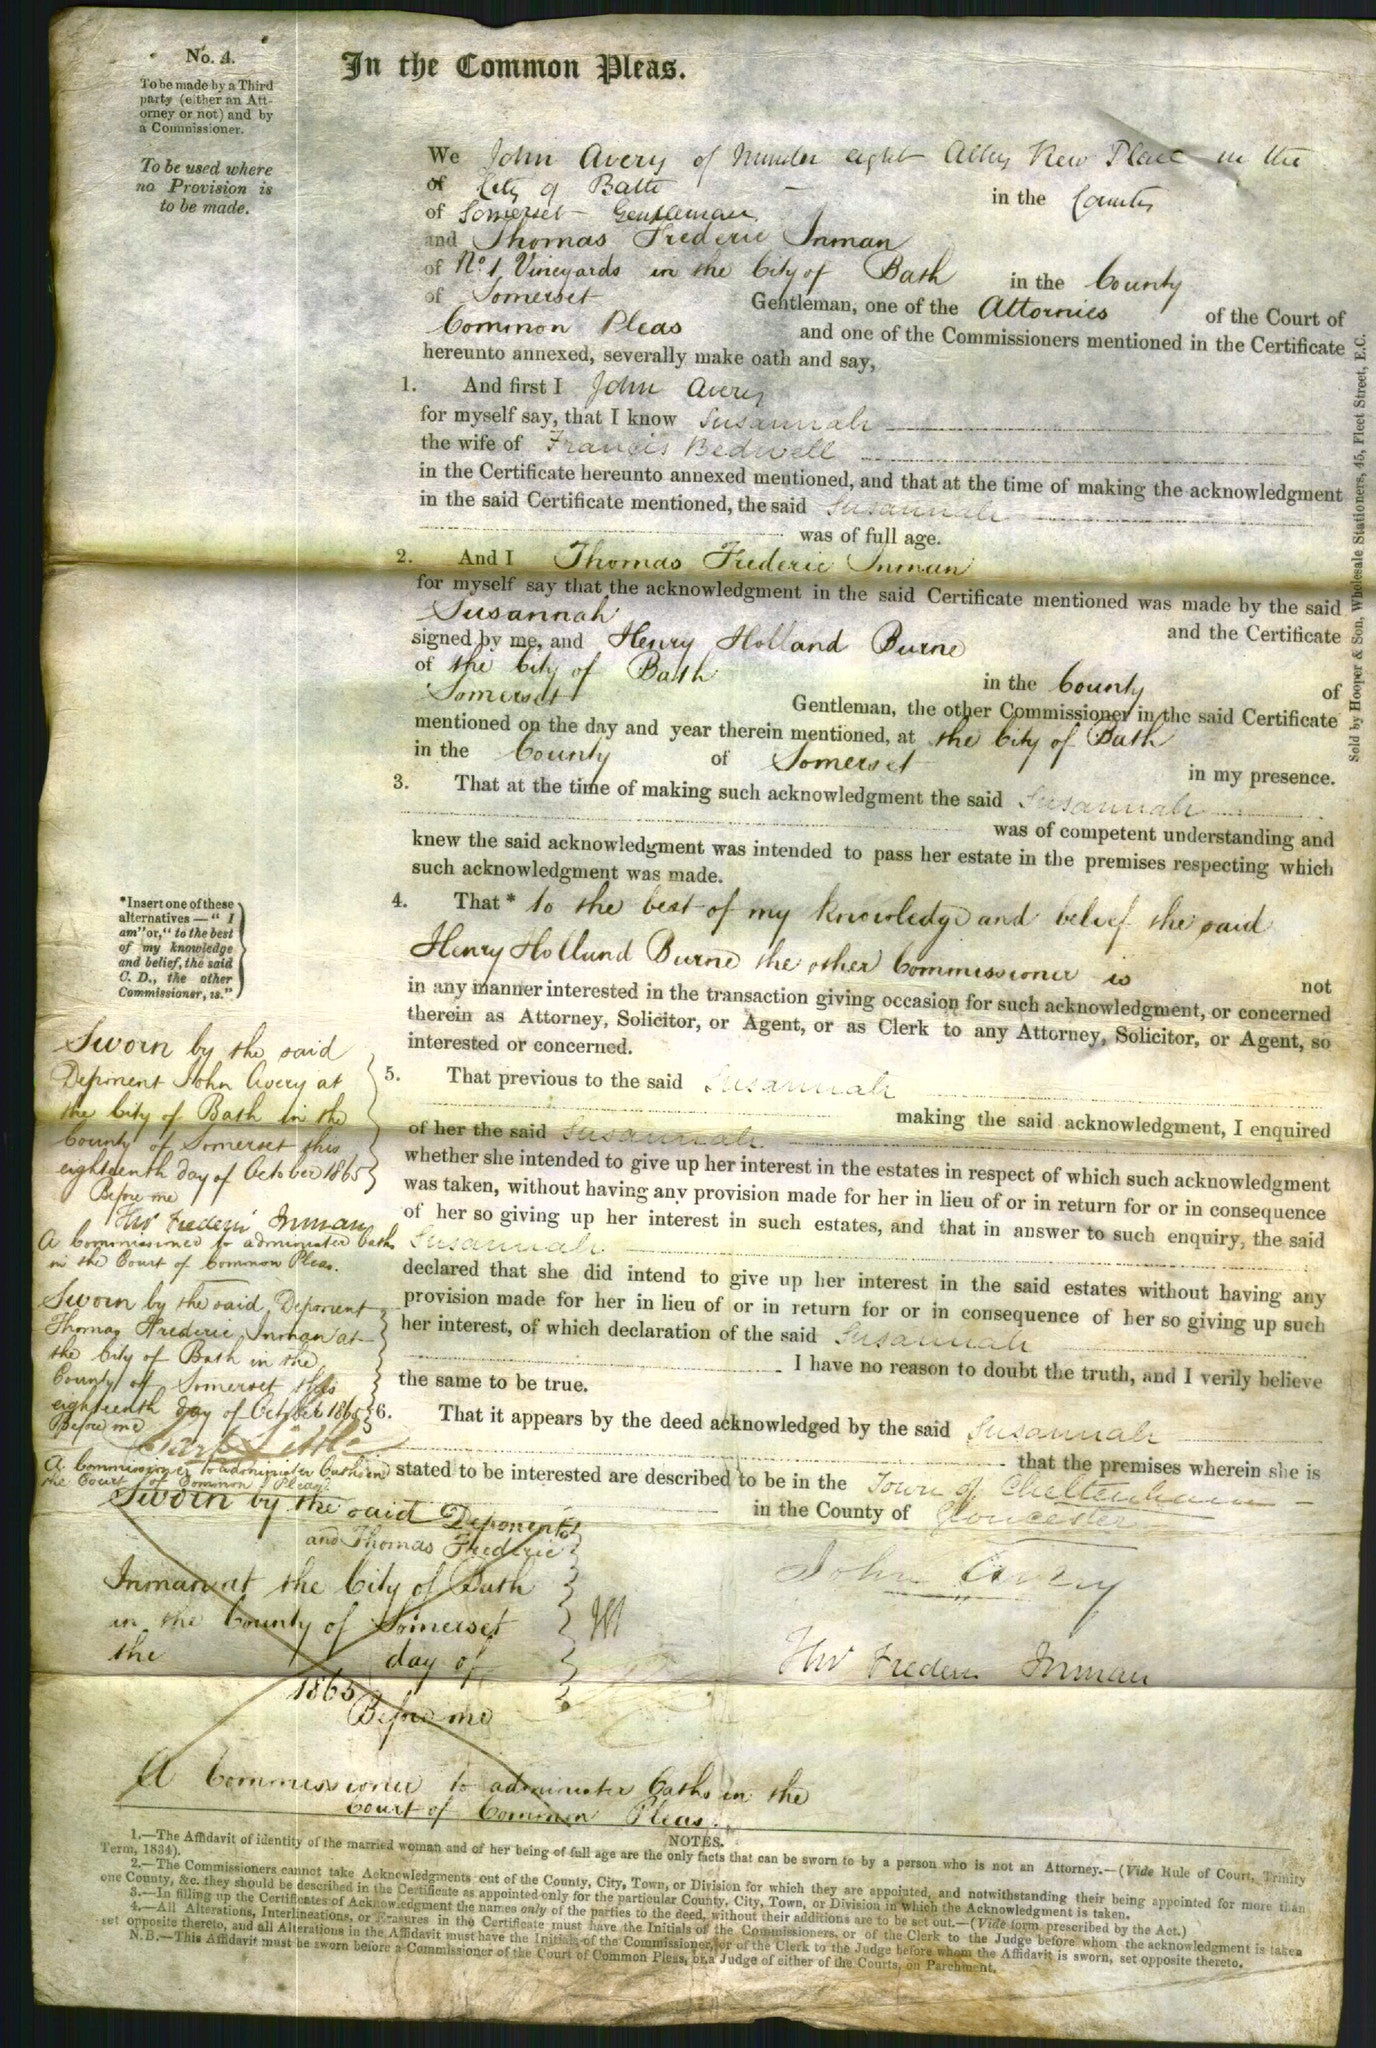 No. 4.
To be made by a Third
party (either an Att-
orney or not) and by
a Commissioner.
To be used where
no Provision is
to be made.
In the Common Pleas.
We John Avery of Number eight Abbey New Place in the
of City of Bath in the County
of Somerset Gentleman
and Thomas Frederic Inman
of No. 1 Vineyards in the City of Bath in the County
of Somerset Gentleman, one of the Attornies of the Court of
Common Pleas and one of the Commissioners mentioned in the Certificate
hereunto annexed, severally make oath and say,
1. And first I John Avery
for myself say, that I know Susannah
the wife of Francis Bedwell
in the Certificate hereunto annexed mentioned, and that at the time of making the acknowledgment
in the said Certificate mentioned, the said Susannah
was of full age.
2. And I Thomas Frederic Inman
for myself say that the acknowledgment in the said Certificate mentioned was made by the said
Susannah and the Certificate
signed by me, and Henry Holland Burne
of the City of Bath in the County of
Somerset Gentleman, the other Commissioner in the said Certificate
mentioned on the day and year therein mentioned, at the City of Bath
in the County of Somerset in my presence.
3. That at the time of making such acknowledgment the said Susannah
was of competent understanding and
knew the said acknowledgment was intended to pass her estate in the premises respecting which
such acknowledgment was made.
*Insert one of these
alternatives—"I
am" or, "to the best
of my knowledge
and belief, the said
C. D., the other
Commissioner, is."
4. That* to the best of my knowledge and belief the said
Henry Holland Burne the other Commissioner is not
in any manner interested in the transaction giving occasion for such acknowledgment, or concerned
therein as Attorney, Solicitor, or Agent, or as Clerk to any Attorney, Solicitor, or Agent, so
interested or concerned.
5. That previous to the said Susannah
making the said acknowledgment, I enquired
of her the said Susannah
whether she intended to give up her interest in the estates in respect of which such acknowledgment
was taken, without having any provision made for her in lieu of or in return for or in consequence
of her so giving up her interest in such estates, and that in answer to such enquiry, the said
Susannah
declared that she did intend to give up her interest in the said estates without having any
provision made for her in lieu of or in return for or in consequence of her so giving up such
her interest, of which declaration of the said Susannah
I have no reason to doubt the truth, and I verily believe
the same to be true.
6. That it appears by the deed acknowledged by the said Susannah
that the premises wherein she is
stated to be interested are described to be in the Town of Cheltenham
in the County of Gloucester
John Avery
Thos Frederic Inman
Sworn by the said
Deponent John Avery at
the City of Bath in the
County of Somerset this
eighteenth day of October 1865
Before me
Thos Frederic Inman
A Commissioner to administer Oaths
in the Court of Common Pleas.
Sworn by the said Deponent
Thomas Frederic Inman at
the City of Bath in the
County of Somerset this
eighteenth day of October 1865
Before me
A Commissioner to administer Oaths in
the Court of Common Pleas.
Sworn by the said Deponents
and Thomas Frederic
Inman at the City of Bath
in the County of Somerset
the day of
1865
Before me
A Commissioner to administer Oaths in the
Court of Common Pleas.
NOTES.
1.—The Affidavit of identity of the married woman and of her being of full age are the only facts that can be sworn to by a person who is not an Attorney.—(Vide Rule of Court, Trinity
Term, 1834).
2.—The Commissioners cannot take Acknowledgments out of the County, City, Town, or Division for which they are appointed, and notwithstanding their being appointed for more than
one County, &c. they should be described in the Certificate as appointed only for the particular County, City, Town, or Division in which the Acknowledgment is taken.
3.—In filling up the Certificates of Acknowledgment the names only of the parties to the deed, without their additions are to be set out.—(Vide form prescribed by the Act.)
4.—All Alterations, Interlineations, or Erasures in the Certificate must have the Initials of the Commissioners, or of the Clerk to the Judge before whom the acknowledgment is taken
set opposite thereto, and all Alterations in the Affidavit must have the Initials of the Commissioner, or of the Clerk to the Judge before whom the Affidavit is sworn, set opposite thereto.
N.B.—This Affidavit must be sworn before a Commissioner of the Court of Common Pleas, or a Judge of either of the Courts, on Parchment.
Sold by Hooper & Son, Wholesale Stationers, 45, Fleet Street, E.C.